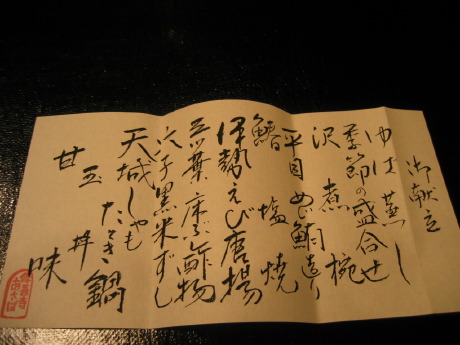 御献立
ゆば蒸し
季節の盛合せ
沢煮椀
平目めじ鮪造り
鰆塩焼
伊勢えび唐揚
三ツ葉 酢物
六子黒米ずし
天城しゃも
たたき鍋
玉丼
甘味